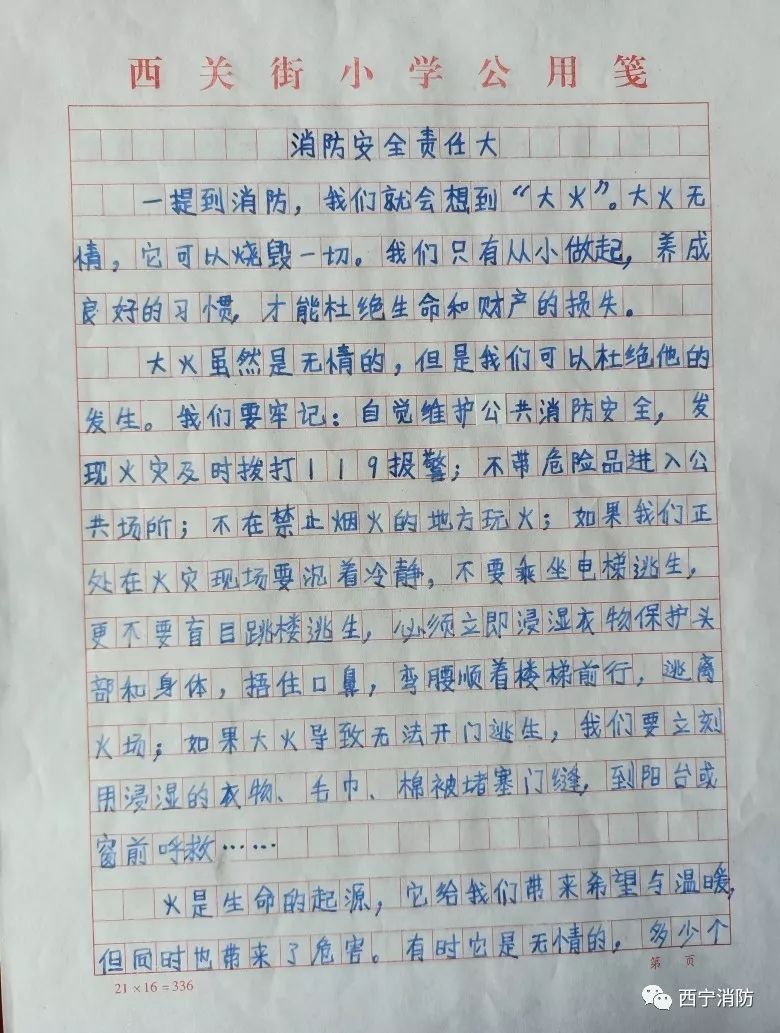 西关街小学公用笺
消防安全责任大
一提到消防，我们就会想到“大火”。大火无
情，它可以烧毁一切。我们只有从小做起，养成
良好的习惯，才能杜绝生命和财产的损失。
大火虽然是无情的，但是我们可以杜绝他的
发生。我们要牢记：自觉维护公共消防安全，发
现火灾及时拨打119报警；不带危险品进入公
共场所；不在禁止烟火的地方玩火；如果我们正
处在火灾现场要沉着冷静，不要乘坐电梯逃生，
更不要盲目跳楼逃生，必须立即浸湿衣物保护头
部和身体，捂住口鼻，弯腰顺着楼梯前行，逃离
火场；如果大火导致无法开门逃生，我们要立刻
用浸湿的衣物、毛巾、棉被堵塞门缝，到阳台或
窗前呼救……
火是生命的起源，它给我们带来希望与温暖，
但同时也带来了危害。有时它是无情的，多少个
21×16=336
第 页
西宁消防